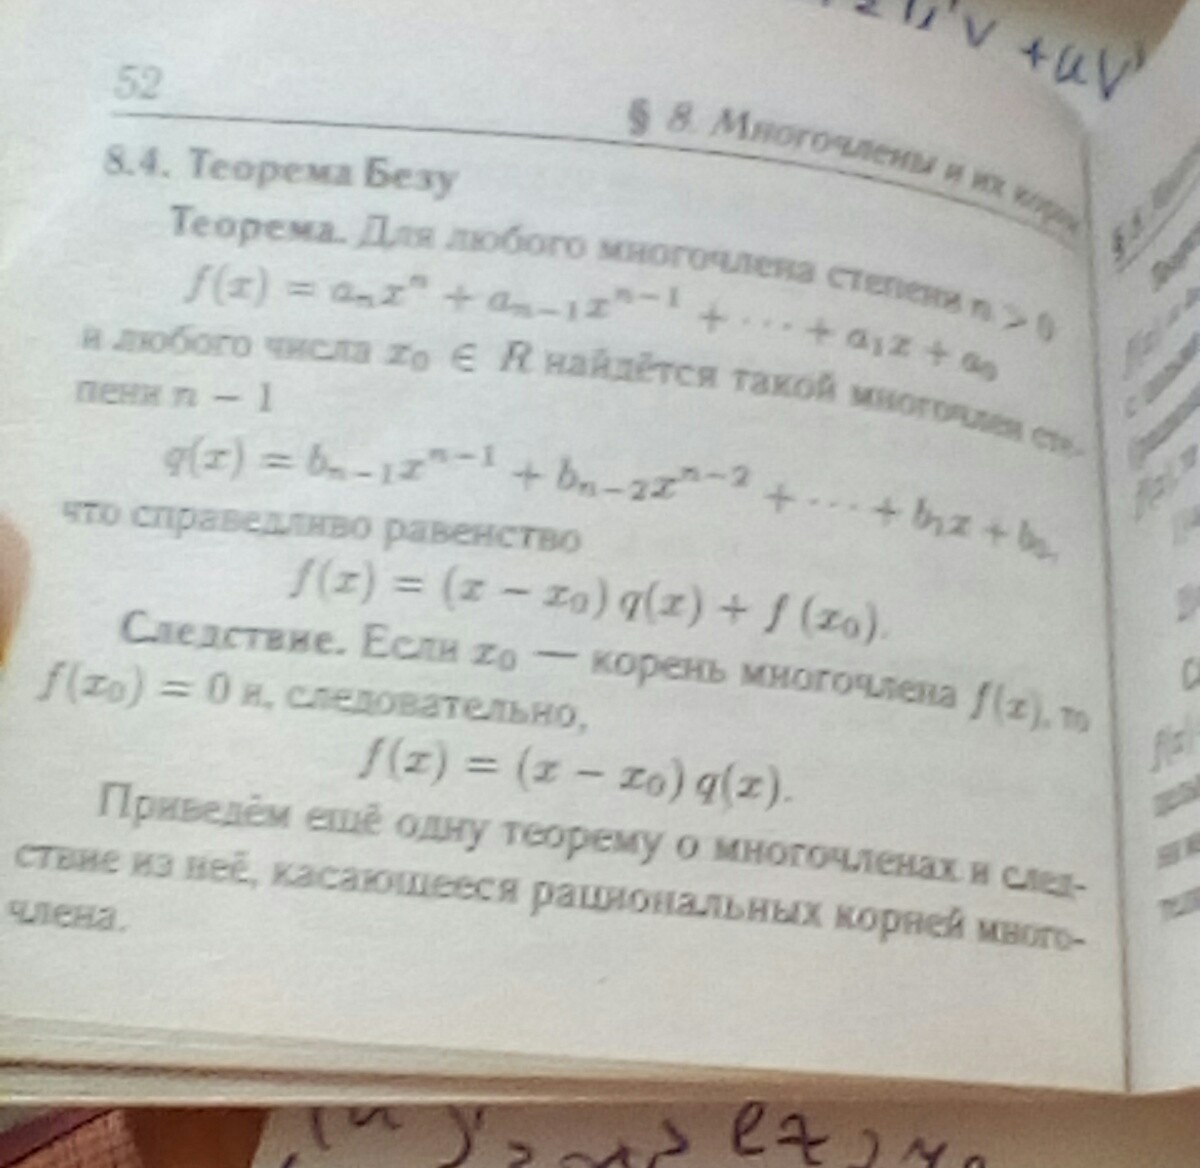 52
§ 8. Многочлены и их корни
8.4. Теорема Безу
Теорема. Для любого многочлена степени n > 0
f(x) = aₙxⁿ + aₙ₋₁xⁿ⁻¹ + ··· + a₁x + a₀
и любого числа x₀ ∈ R найдётся такой многочлен сте-
пени n − 1
q(x) = bₙ₋₁xⁿ⁻¹ + bₙ₋₂xⁿ⁻² + ··· + b₁x + b₀,
что справедливо равенство
f(x) = (x − x₀) q(x) + f (x₀).
Следствие. Если x₀ — корень многочлена f(x), то
f(x₀) = 0 и, следовательно,
f(x) = (x − x₀) q(x).
Приведём ещё одну теорему о многочленах и след-
ствие из неё, касающееся рациональных корней много-
члена.